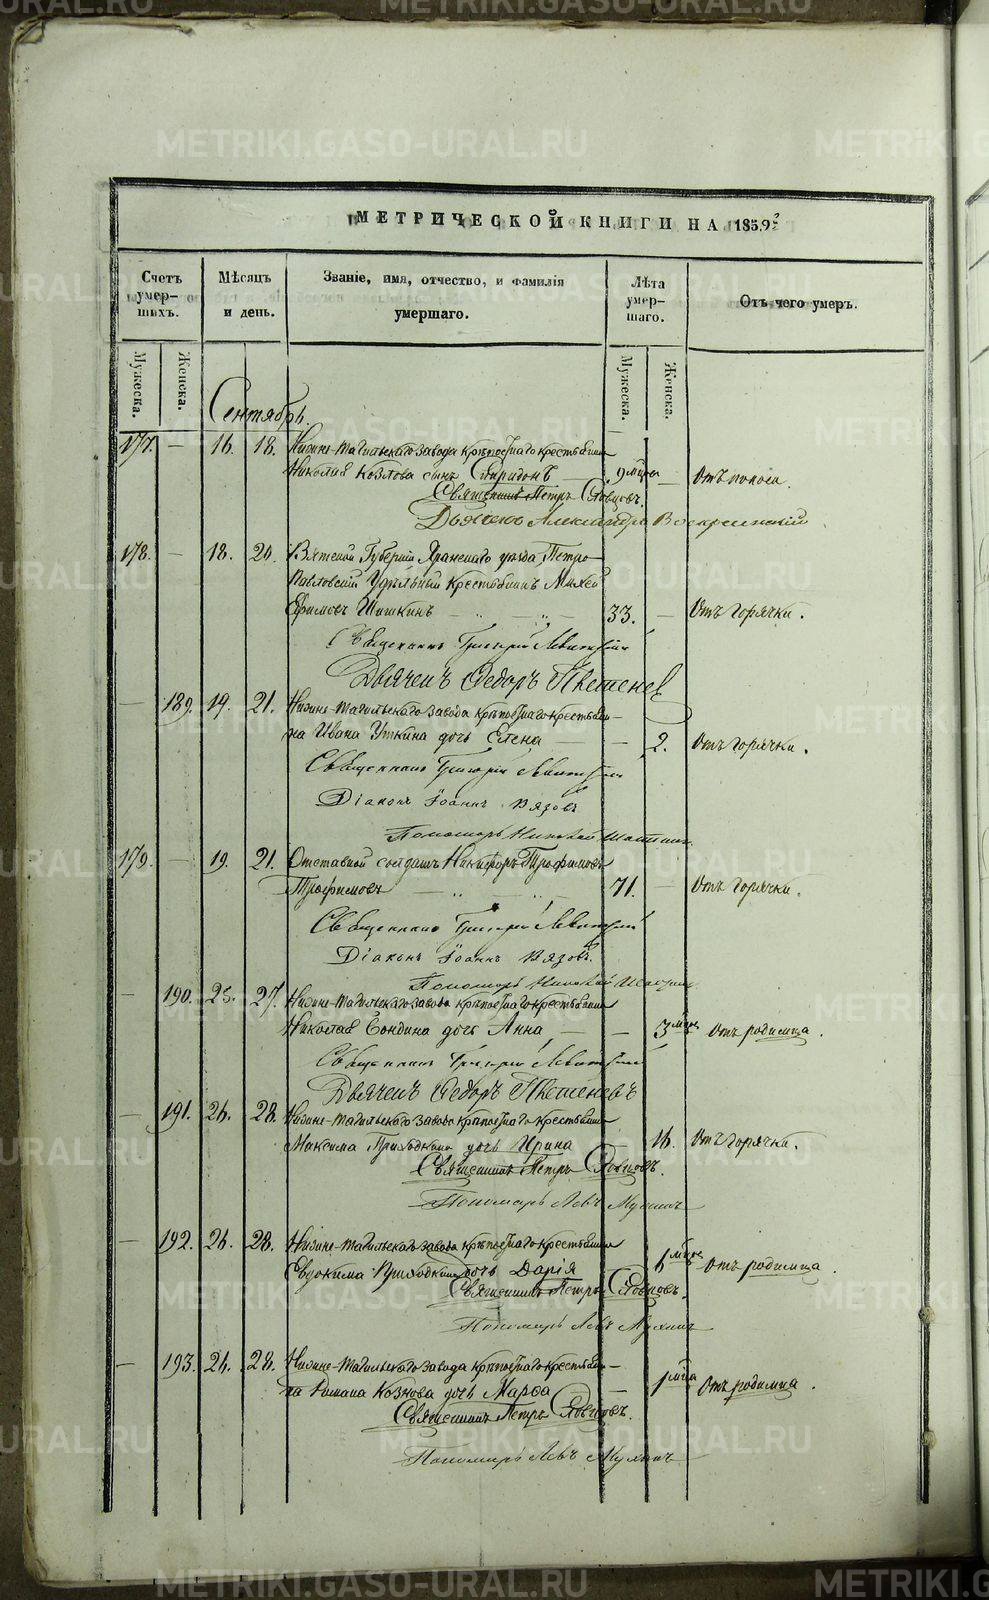 METRIKI.GASO-URAL.RU
МЕТРИЧЕСКОЙ КНИГИ НА 1859
Счетъ умершихъ.
Мѣсяцъ и день.
Званіе, имя, отчество, и фамилія умершаго.
Лѣта умершаго.
Отъ чего умеръ.
Мужеска.
Женска.
Мужеска.
Женска.
Сентябрь.
177. — 16. 18. Нижне-Тагильскаго завода крѣпостнаго крестьянина
Николая Козлова сынъ Спиридонъ — 9 мѣсяца — Отъ поноса.
Священникъ Петръ Словцовъ.
Дьячекъ Александръ Воскресенскій
178. — 18. 20. Вятской Губерніи Яранскаго уѣзда Петро-
Павловскій Удѣльный Крестьянинъ
Ефимовъ Шишкинъ — 33. — Отъ горячки.
Священникъ Григорій Левитскій
Дьячекъ Ѳедоръ
— 189. 19. 21. Нижне-Тагильскаго завода крѣпостнаго крестьяни-
на Ивана Уткина дочь Елена — — 2. Отъ горячки.
Священникъ Григорій Левитскій
Діаконъ Іоаннъ Вязовъ
Пономарь Николай
179. — 19. 21. Отставной солдатъ Никифоръ Трофимовъ
Трофимовъ — 71. — Отъ горячки.
Священникъ Григорій Левитскій
Діаконъ Іоаннъ Вязовъ.
Пономарь Николай
— 190. 25. 27. Нижне-Тагильскаго завода крѣпостнаго крестьянина
Николая дочь Анна — — 3 мѣсяц Отъ родимца.
Священникъ Григорій Левитскій
Дьячекъ Ѳедоръ
— 191. 26. 28. Нижне-Тагильскаго завода крѣпостнаго крестьянина
Максима Приходкина дочь Ирина 16. Отъ горячки.
Священникъ Петръ Словцовъ.
Пономарь Левъ Мухинъ
— 192. 26. 28. Нижне-Тагильскаго завода крѣпостнаго крестьянина
Евдокима Приходкина дочь Дарія мѣсяц Отъ родимца.
Священникъ Петръ Словцовъ.
Пономарь Левъ Мухинъ
— 193. 26. 28. Нижне-Тагильскаго завода крѣпостнаго крестьяни-
на Романа дочь Марѳа — 1 мѣсяца Отъ родимца.
Священникъ Петръ Словцовъ.
Пономарь Левъ Мухинъ